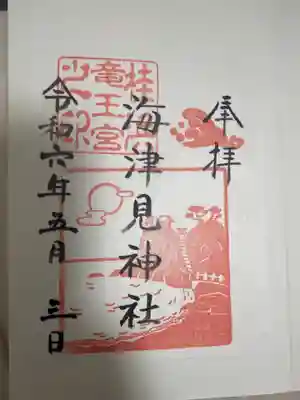 奉拝
海津見神社
令和六年五月 三日
竜王宮